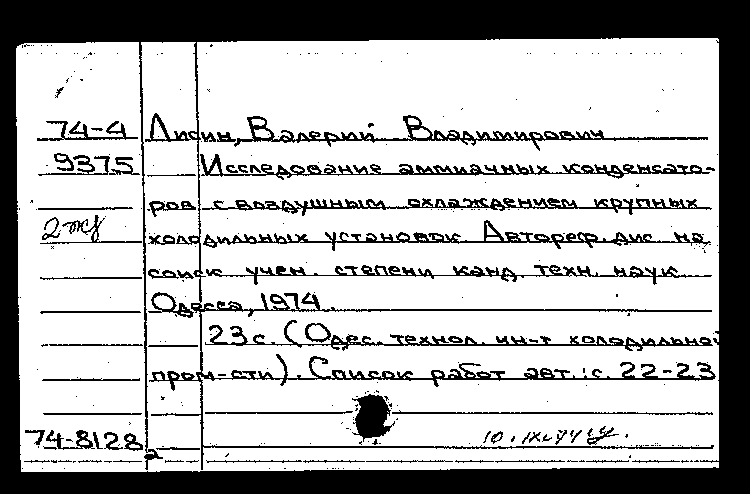 74-4 Лисин, Валерий Владимирович
9375 Исследование аммиачных конденсато-
ров с воздушным охлаждением крупных
холодильных установок. Автореф. дис. на
соиск. учен. степени канд. техн. наук
Одесса, 1974.
23 с. (Одес. технол. ин-т холодильной
пром-сти). Список работ авт.: с. 22-23
74-8128 10.IX.74